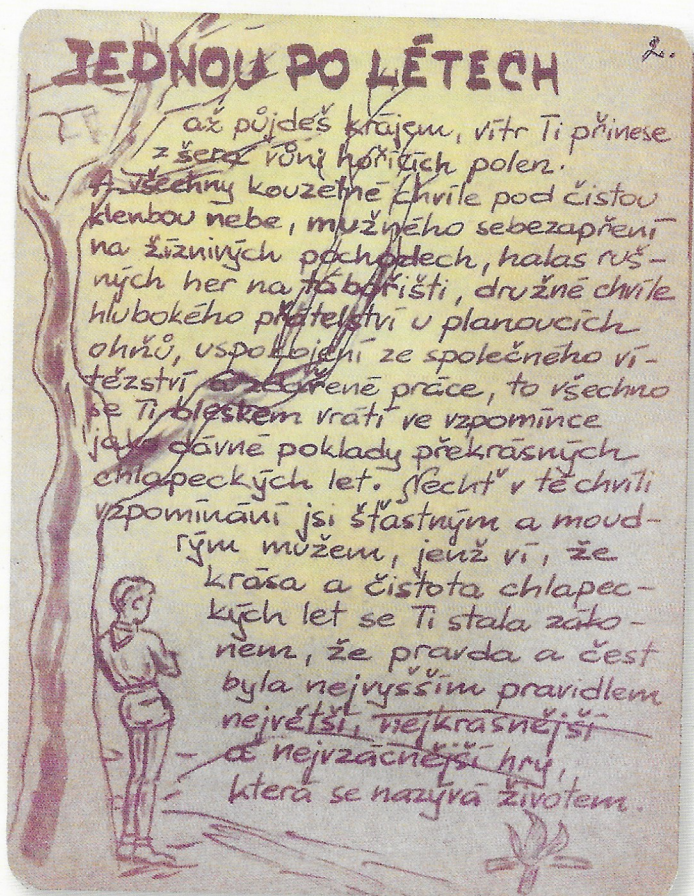 2.
JEDNOU PO LÉTECH
až půjdeš krajem, vítr Ti přinese
z šera vůni hořících polen.
A všechny kouzelné chvíle pod čistou
klenbou nebe, mužného sebezapření
na žíznivých pochodech, halas ruš-
ných her na tábořišti, družné chvíle
hlubokého přátelství u planoucích
ohňů, uspokojení ze společného ví-
tězství a zdařené práce, to všechno
se Ti bleskem vrátí ve vzpomínce
jako dávné poklady překrásných
chlapeckých let. Nechť v té chvíli
vzpomínání jsi šťastným a moud-
rým mužem, jenž ví, že
krása a čistota chlapec-
kých let se Ti stala záko-
nem, že pravda a čest
byla nejvyšším pravidlem
největší, nejkrásnější
a nejvzácnější hry,
která se nazývá životem.